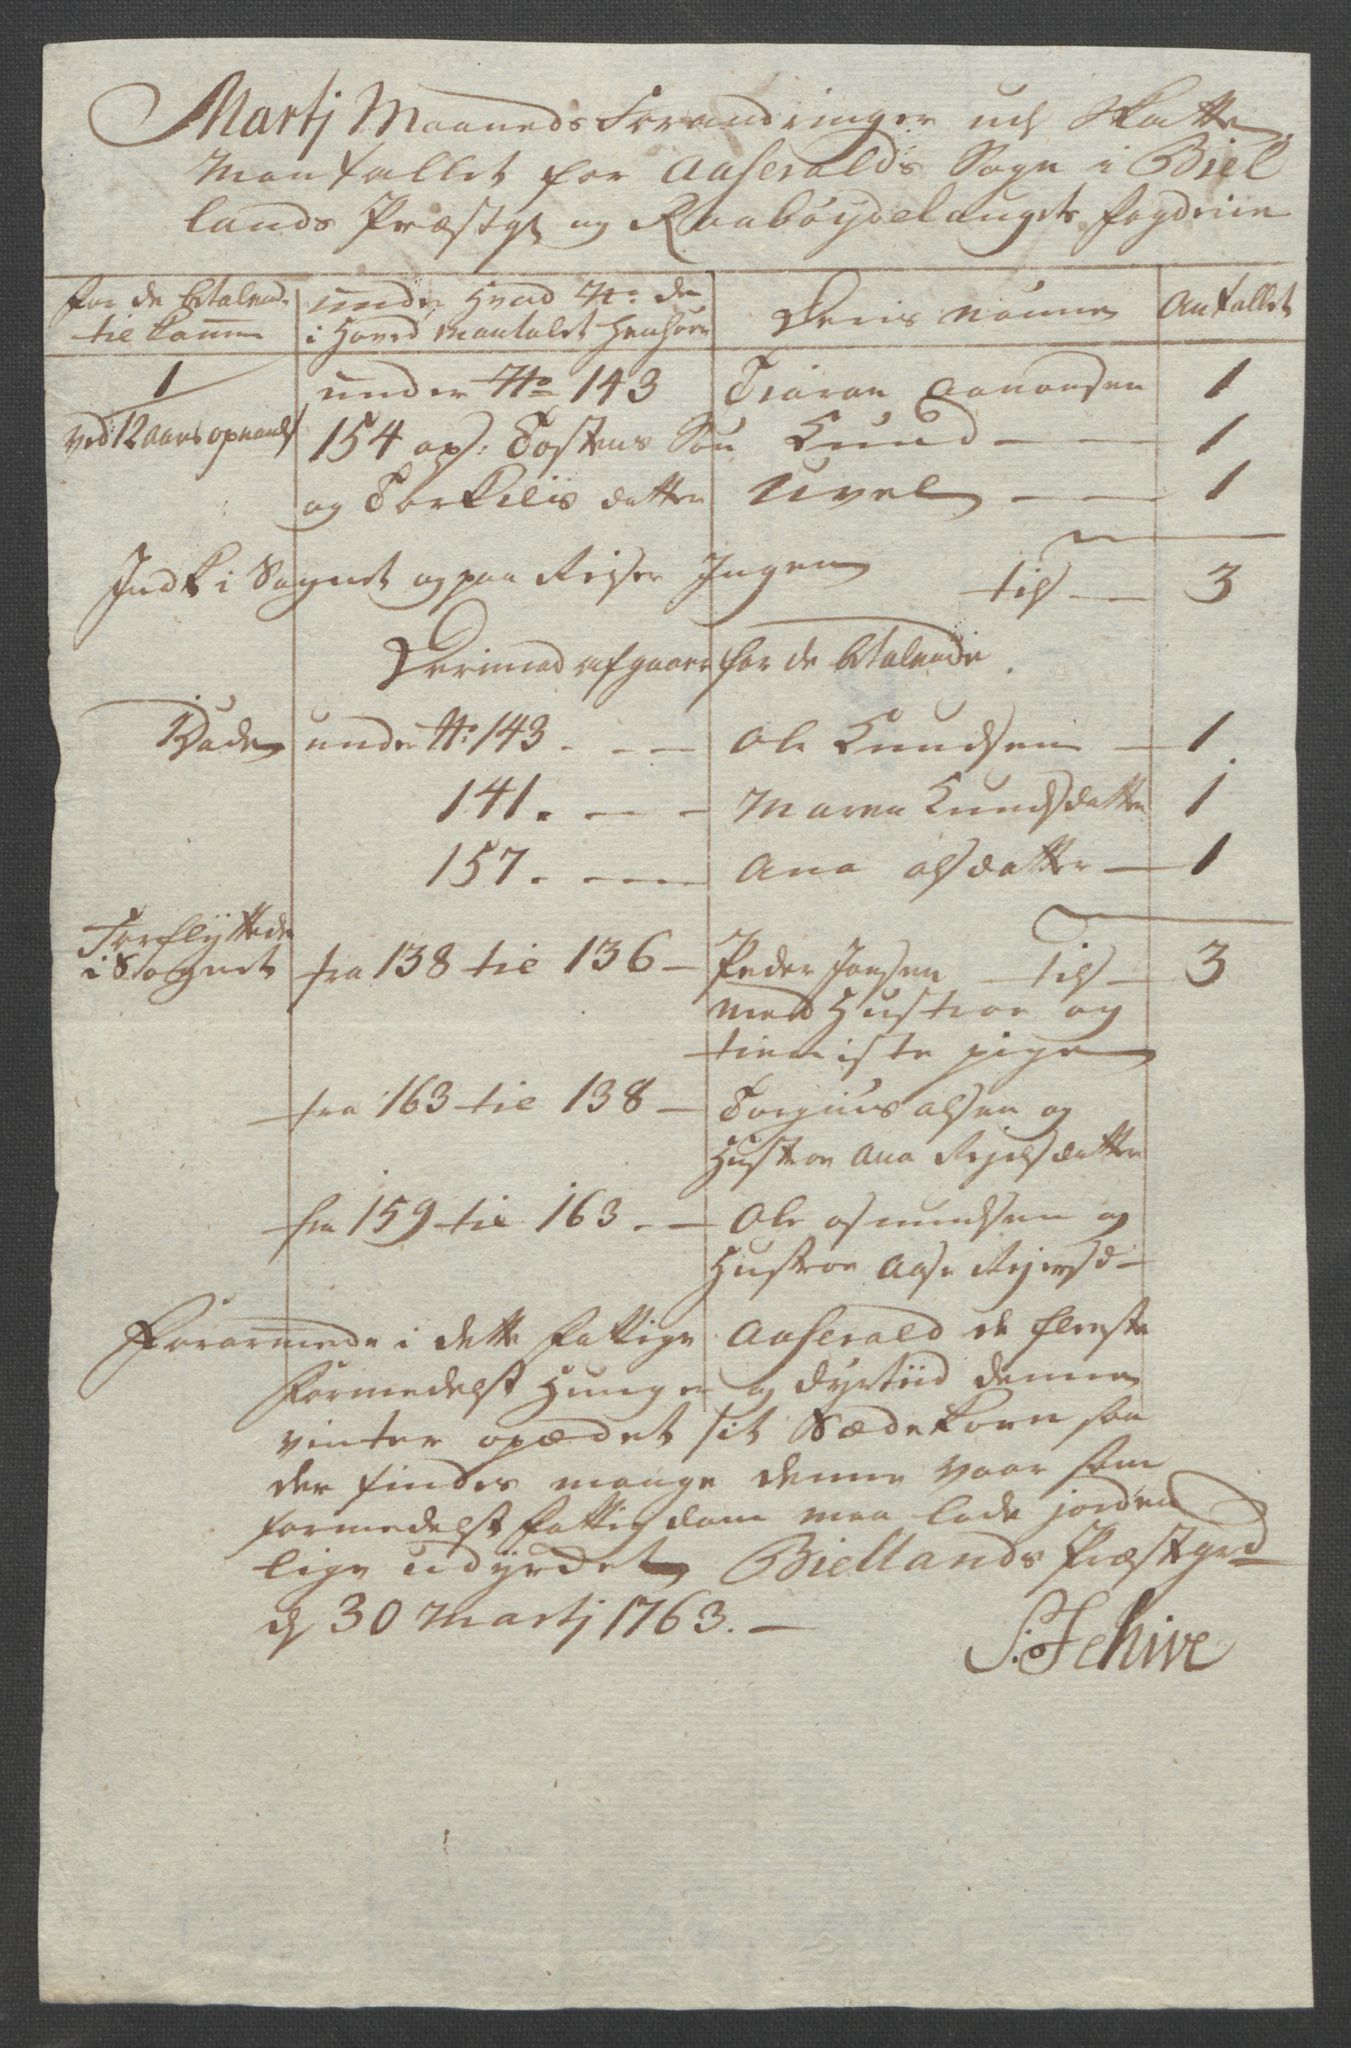 Martj Maaneds Forandringer ved Skatte
Mantallet for Aaseralds Sogn i Biel
lands Præstgl og Raabøydelaugets fogderie
for de betalend. under hvad No. de Deris Naune Antallet
tie komme i Hoved Mantalet henhøre
1 under No 143 Tiøran Aanonsen 1
ved 12 aars opnaaelse 154 op. Tostens Søn Knud — 1
og Torkilis datter Uvel — 1
Indk i Sognet og paa Reiser Ingen til — 3
Derimod afgaaer for de betalende.
Døde under No. 143. - - Ole Knudsen — 1.
141. - - - Maren Knudsdatter 1
157. - - - Ana olsdatter — 1
Forflyttede
i Sognet fra 138 tie 136 — Peder Jonsen — til — 3
med Hustroe og
tieniste pige
fra 163 tie 138 — Torjuus olsen og
Hustroe Ana Rejelsdatter
fra 159 tie 163. — Ole osmundsen og
Hustroe Aase Rejersd—
Forarmede i dette fattige Aaserald de fleeste
formedelst Hunger og dyrtiid denne
vinter opædet sit Sædekorn saa
der findes mange denne Vaar som
formedelst fattigdom maa lade jorden
lige udyrdet Biellands Præstgrd
d 30 Martj 1763. —
S: Schive